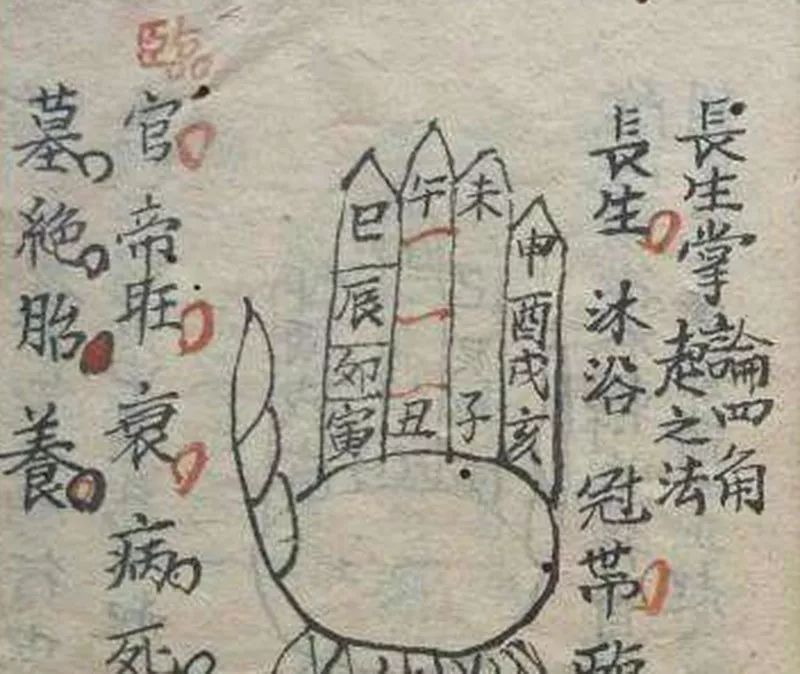 長生掌
論四角
起之法
長生 沐浴 冠帯 臨
臨
官 帝旺 衰 病 死
墓 絶 胎 養
巳 午 未 申
辰 酉
卯 戌
寅 丑 子 亥